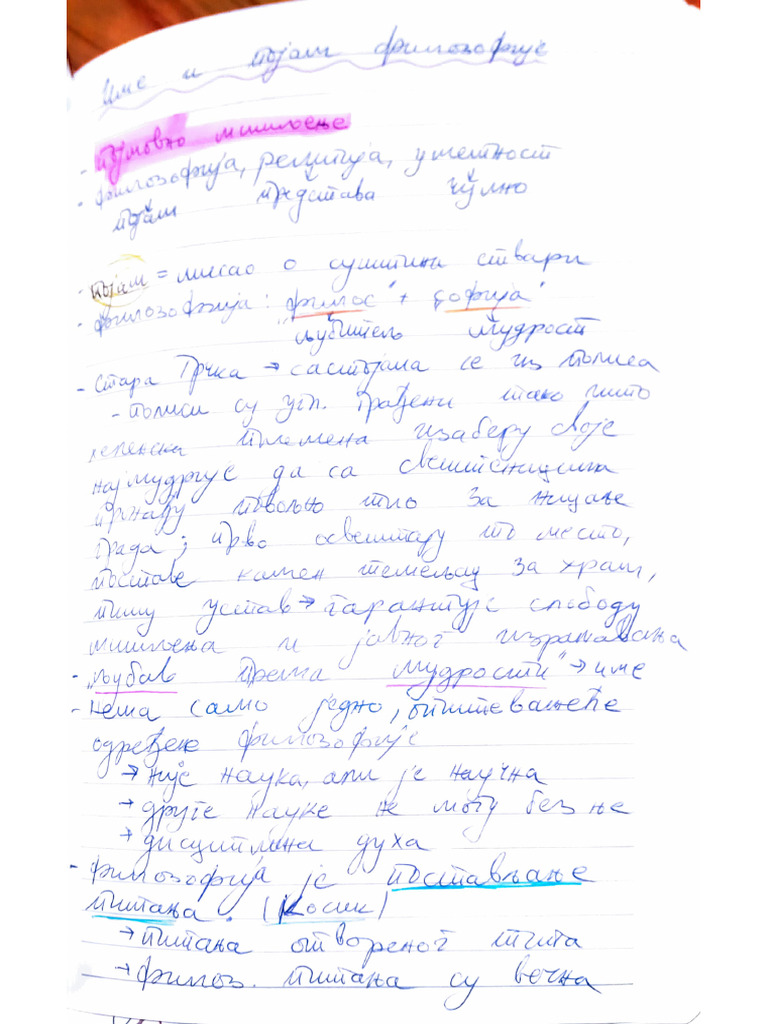 Име и појам филозофије
- појмовно мишљење
- филозофија, религија, уметност
појам представа чулно
- појам = мисао о суштини ствари
- филозофија: "филос" + "софија"
љубитељ мудрост
- Стара Грчка → састојала се из полиса
- полиси су углавном
грађени тако што
хеленска племена изаберу своје
најмудрије да са свештеницима
пронађу повољно тло за ницање
града; прво освештају то место,
поставе камен темељац за храм,
пишу устав → гарантује слободу
мишљења и јавног изражавања
- "љубав према мудрости" → име
- Нема само једно, општеважеће
одређење филозофије
→ није наука, али је научна
→ друге науке не могу без ње
→ дисциплина духа
- Филозофија је постављање
питања. (Косик)
→ питања отвореног типа
→ филоз. питања су вечна